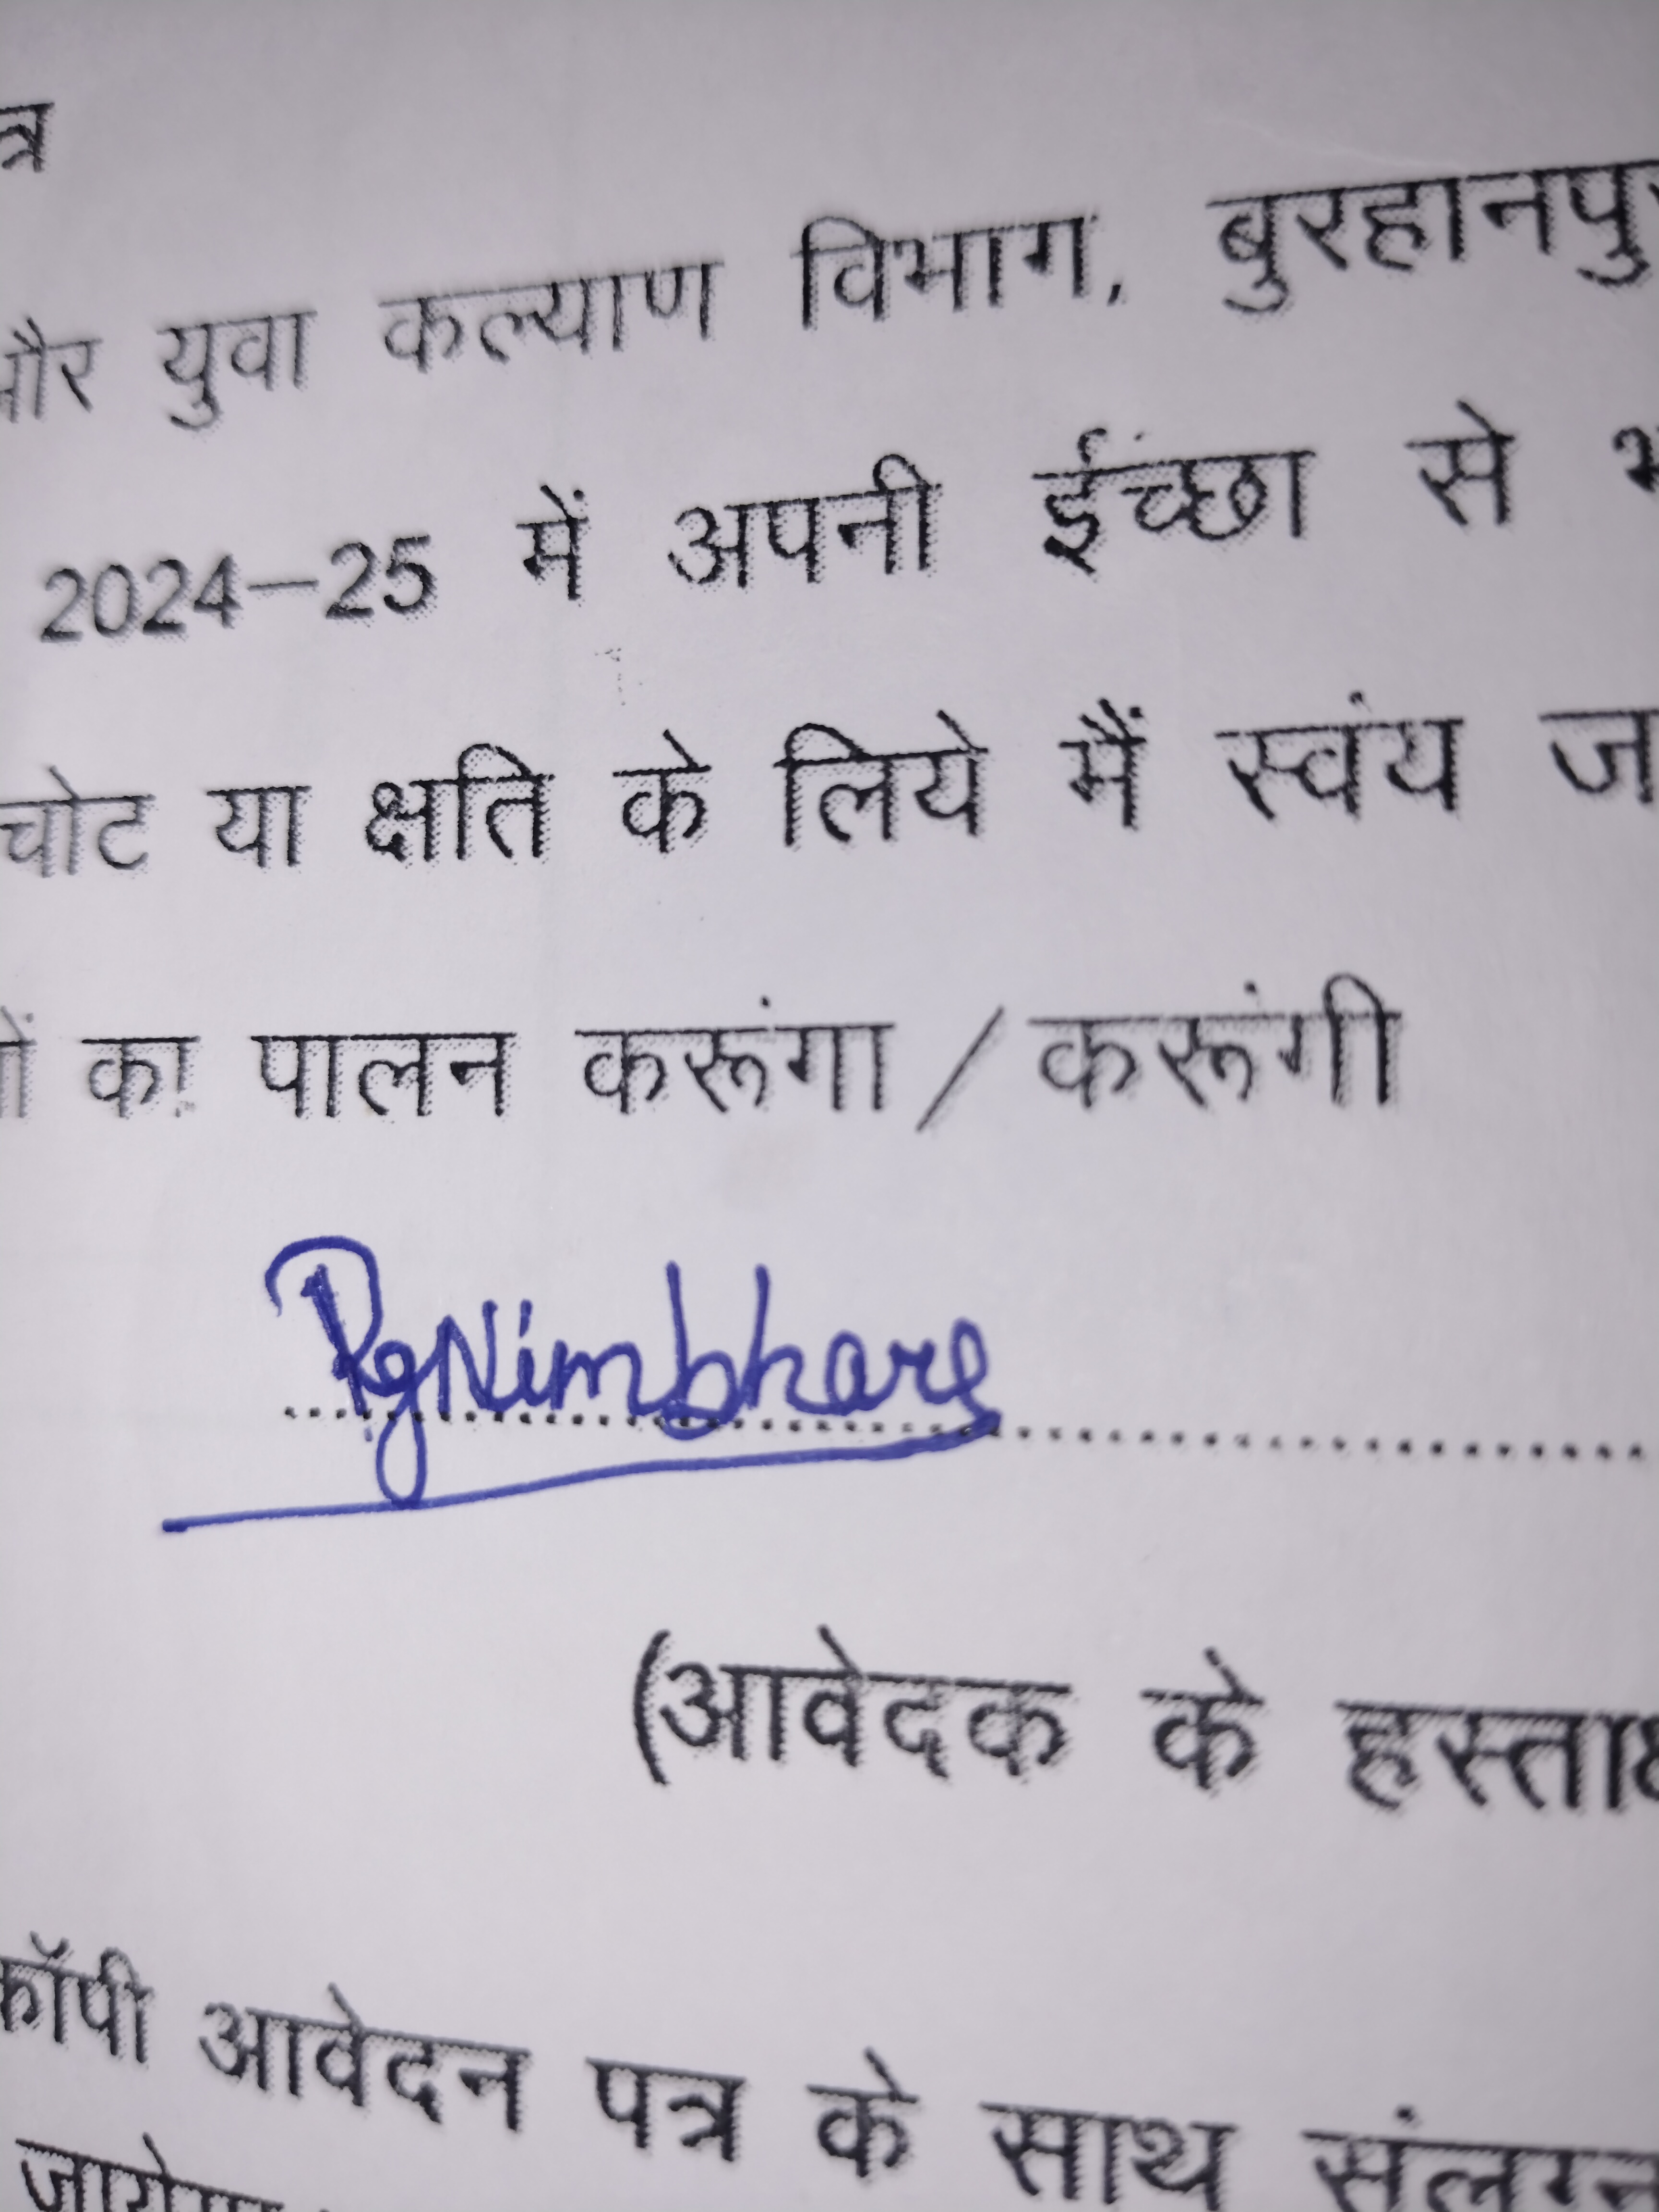 और युवा कल्याण विभाग, बुरहानपुर
2024-25 में अपनी ईच्छा से
चोट या क्षति के लिये मैं स्वंय
का पालन करूंगा / करूंगी
PgNimbhare
(आवेदक के
कॉपी आवेदन पत्र के साथ संलग्न